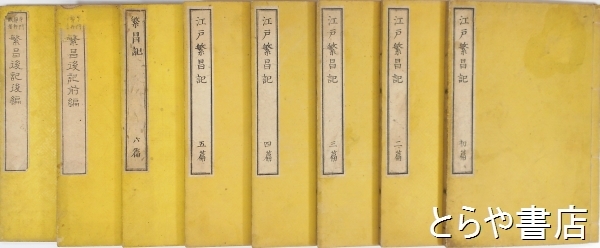 江戸繁昌記 初篇
江戸繁昌記 二篇
江戸繁昌記 三篇
江戸繁昌記 四篇
江戸繁昌記 五篇
繁昌記 六篇
繁昌後記前編
繁昌後記後編
とらや書店